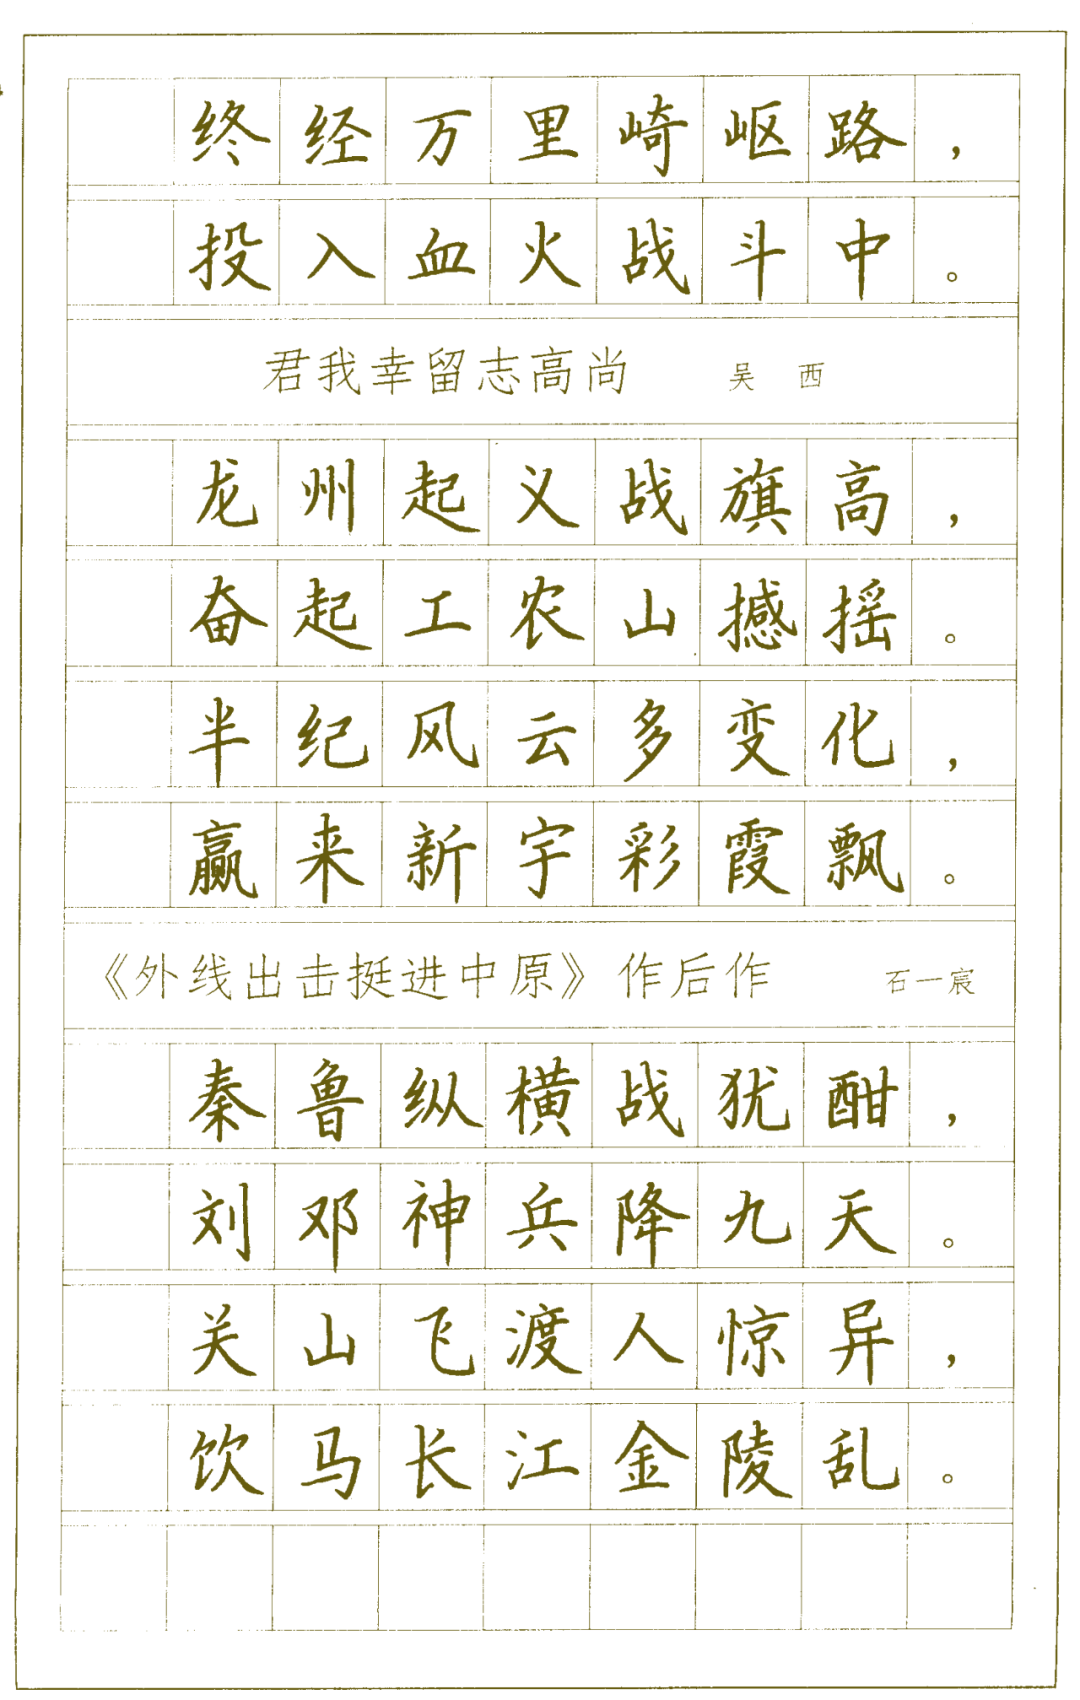 终经万里崎岖路，
投入血火战斗中。
君我幸留志高尚 吴西
龙州起义战旗高，
奋起工农山撼摇。
半纪风云多变化，
赢来新宇彩霞飘。
《外线出击挺进中原》作后作 石一宸
秦鲁纵横战犹酣，
刘邓神兵降九天。
关山飞渡人惊异，
饮马长江金陵乱。